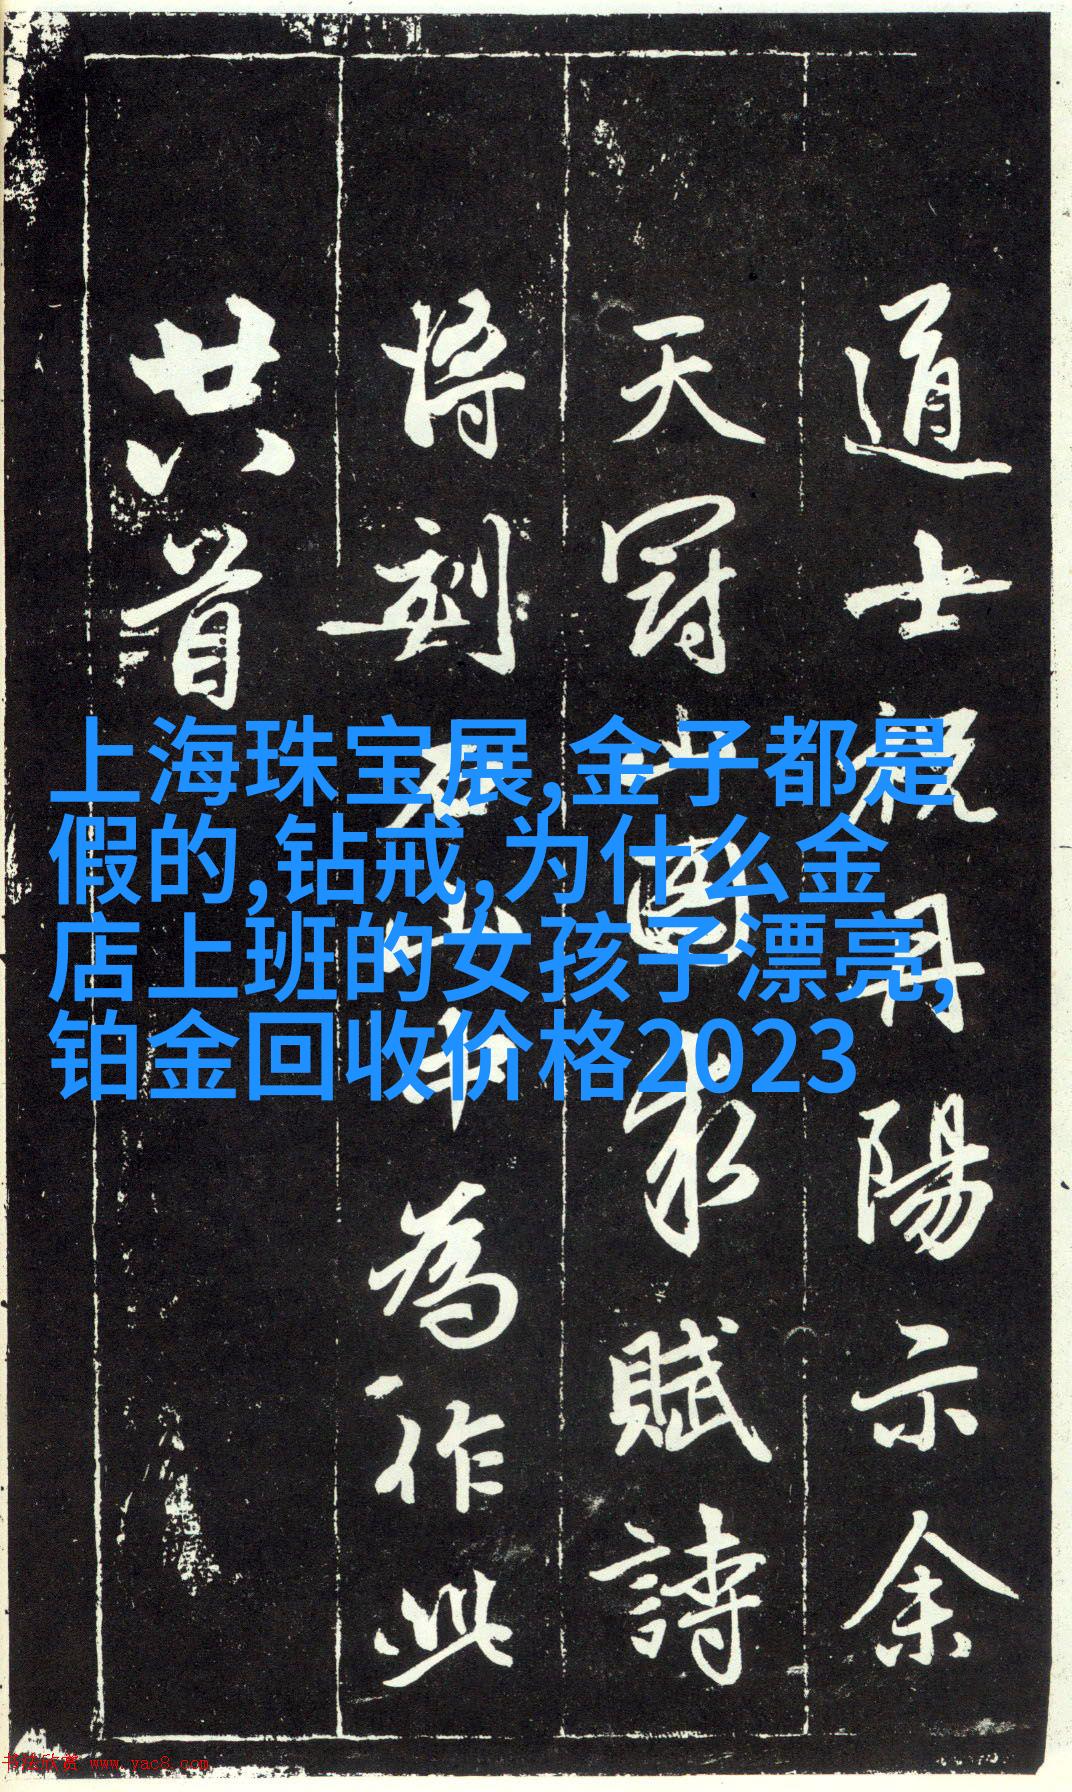 道士祝丹陽示余
天冠山圖求賦詩
將刻石山中為作此
廿八首
上海珠宝展,金子都是
假的,钻戒,为什么金
店上班的女孩子漂亮,
铂金回收价格2023
书法欣赏 www.yac8.com